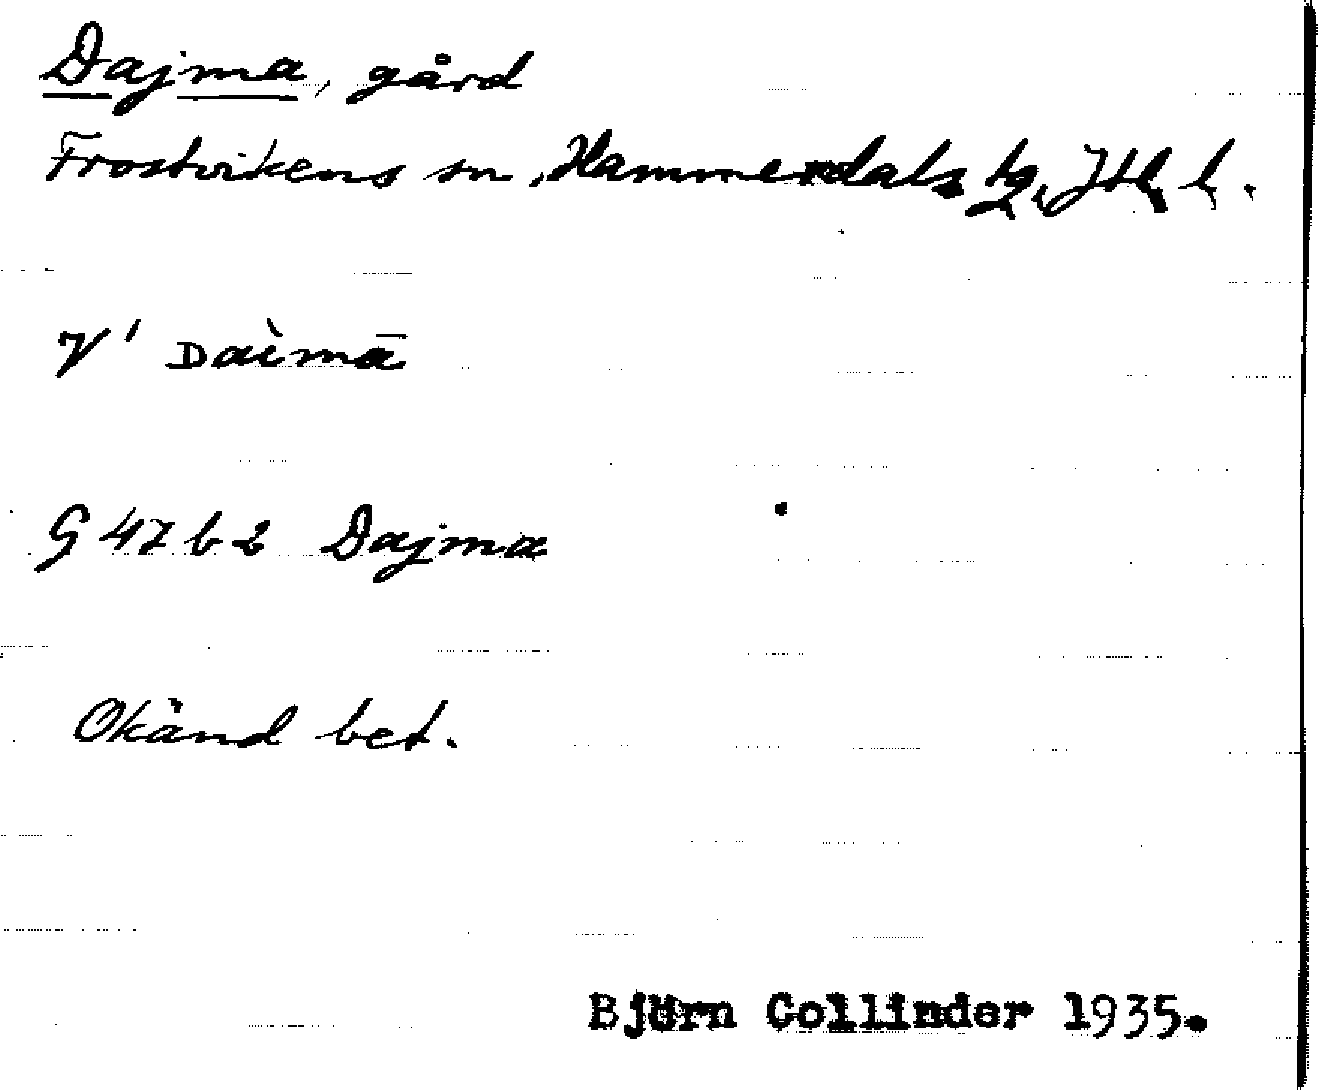 Dajma, gård
Frostvikens sn, Hammerdals tg, Jtl. l.
V' Dàimā
G 47 b 2 Dajma
Okänd bet.
Björn Collinder 1935.